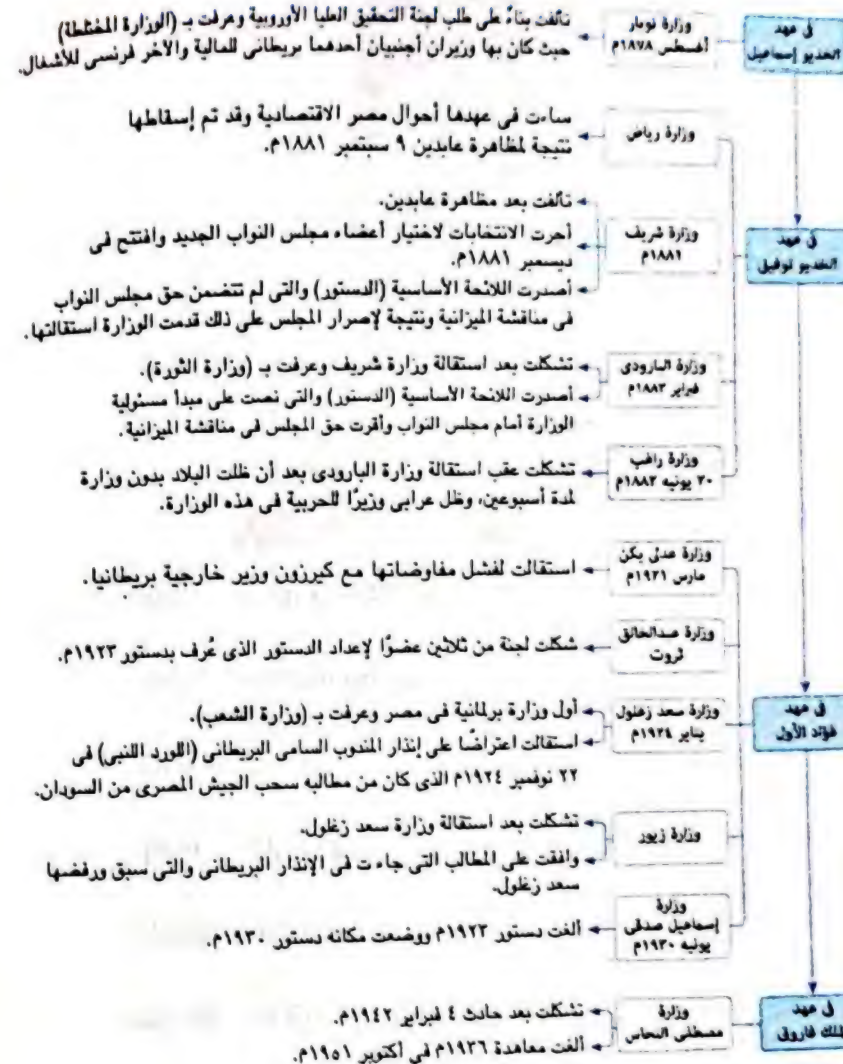 فى عهد
الخديو إسماعيل
وزارة نوبار
أغسطس ١٨٧٨م
تألفت بناءً على طلب لجنة التحقيق العليا الأوروبية وعرفت بـ (الوزارة المختلطة)
حيث كان بها وزيران أجنبيان أحدهما بريطانى للمالية والآخر فرنسى للأشغال.
فى عهد
الخديو توفيق
وزارة رياض
ساءت فى عهدها أحوال مصر الاقتصادية وقد تم إسقاطها
نتيجة لمظاهرة عابدين ٩ سبتمبر ١٨٨١م.
وزارة شريف
١٨٨١م
تألفت بعد مظاهرة عابدين.
أجرت الانتخابات لاختيار أعضاء مجلس النواب الجديد وافتتح فى
ديسمبر ١٨٨١م.
أصدرت اللائحة الأساسية (الدستور) والتى لم تتضمن حق مجلس النواب
فى مناقشة الميزانية ونتيجة لإصرار المجلس على ذلك قدمت الوزارة استقالتها.
وزارة البارودى
فبراير ١٨٨٢م
تشكلت بعد استقالة وزارة شريف وعرفت بـ (وزارة الثورة).
أصدرت اللائحة الأساسية (الدستور) والتى نصت على مبدأ مسئولية
الوزارة أمام مجلس النواب وأقرت حق المجلس فى مناقشة الميزانية.
وزارة راغب
٢٠ يونيه ١٨٨٢م
تشكلت عقب استقالة وزارة البارودى بعد أن ظلت البلاد بدون وزارة
لمدة أسبوعين، وظل عرابى وزيرًا للحربية فى هذه الوزارة.
فى عهد
فؤاد الأول
وزارة عدلى يكن
مارس ١٩٢١م
استقالت لفشل مفاوضاتها مع كيرزون وزير خارجية بريطانيا.
وزارة عبدالخالق
ثروت
شكلت لجنة من ثلاثين عضوًا لإعداد الدستور الذى عُرف بدستور ١٩٢٣م.
وزارة سعد زغلول
يناير ١٩٢٤م
أول وزارة برلمانية فى مصر وعرفت بـ (وزارة الشعب).
استقالت اعتراضًا على إنذار المندوب السامى البريطانى (اللورد اللنبى) فى
٢٢ نوفمبر ١٩٢٤م الذى كان من مطالبه سحب الجيش المصرى من السودان.
وزارة زيور
تشكلت بعد استقالة وزارة سعد زغلول.
وافقت على المطالب التى جاءت فى الإنذار البريطانى والتى سبق ورفضها
سعد زغلول.
وزارة
إسماعيل صدقى
يونيه ١٩٣٠م
ألغت دستور ١٩٢٣م ووضعت مكانه دستور ١٩٣٠م.
فى عهد
الملك فاروق
وزارة
مصطفى النحاس
تشكلت بعد حادث ٤ فبراير ١٩٤٢م.
ألغت معاهدة ١٩٣٦م فى أكتوبر ١٩٥١م.